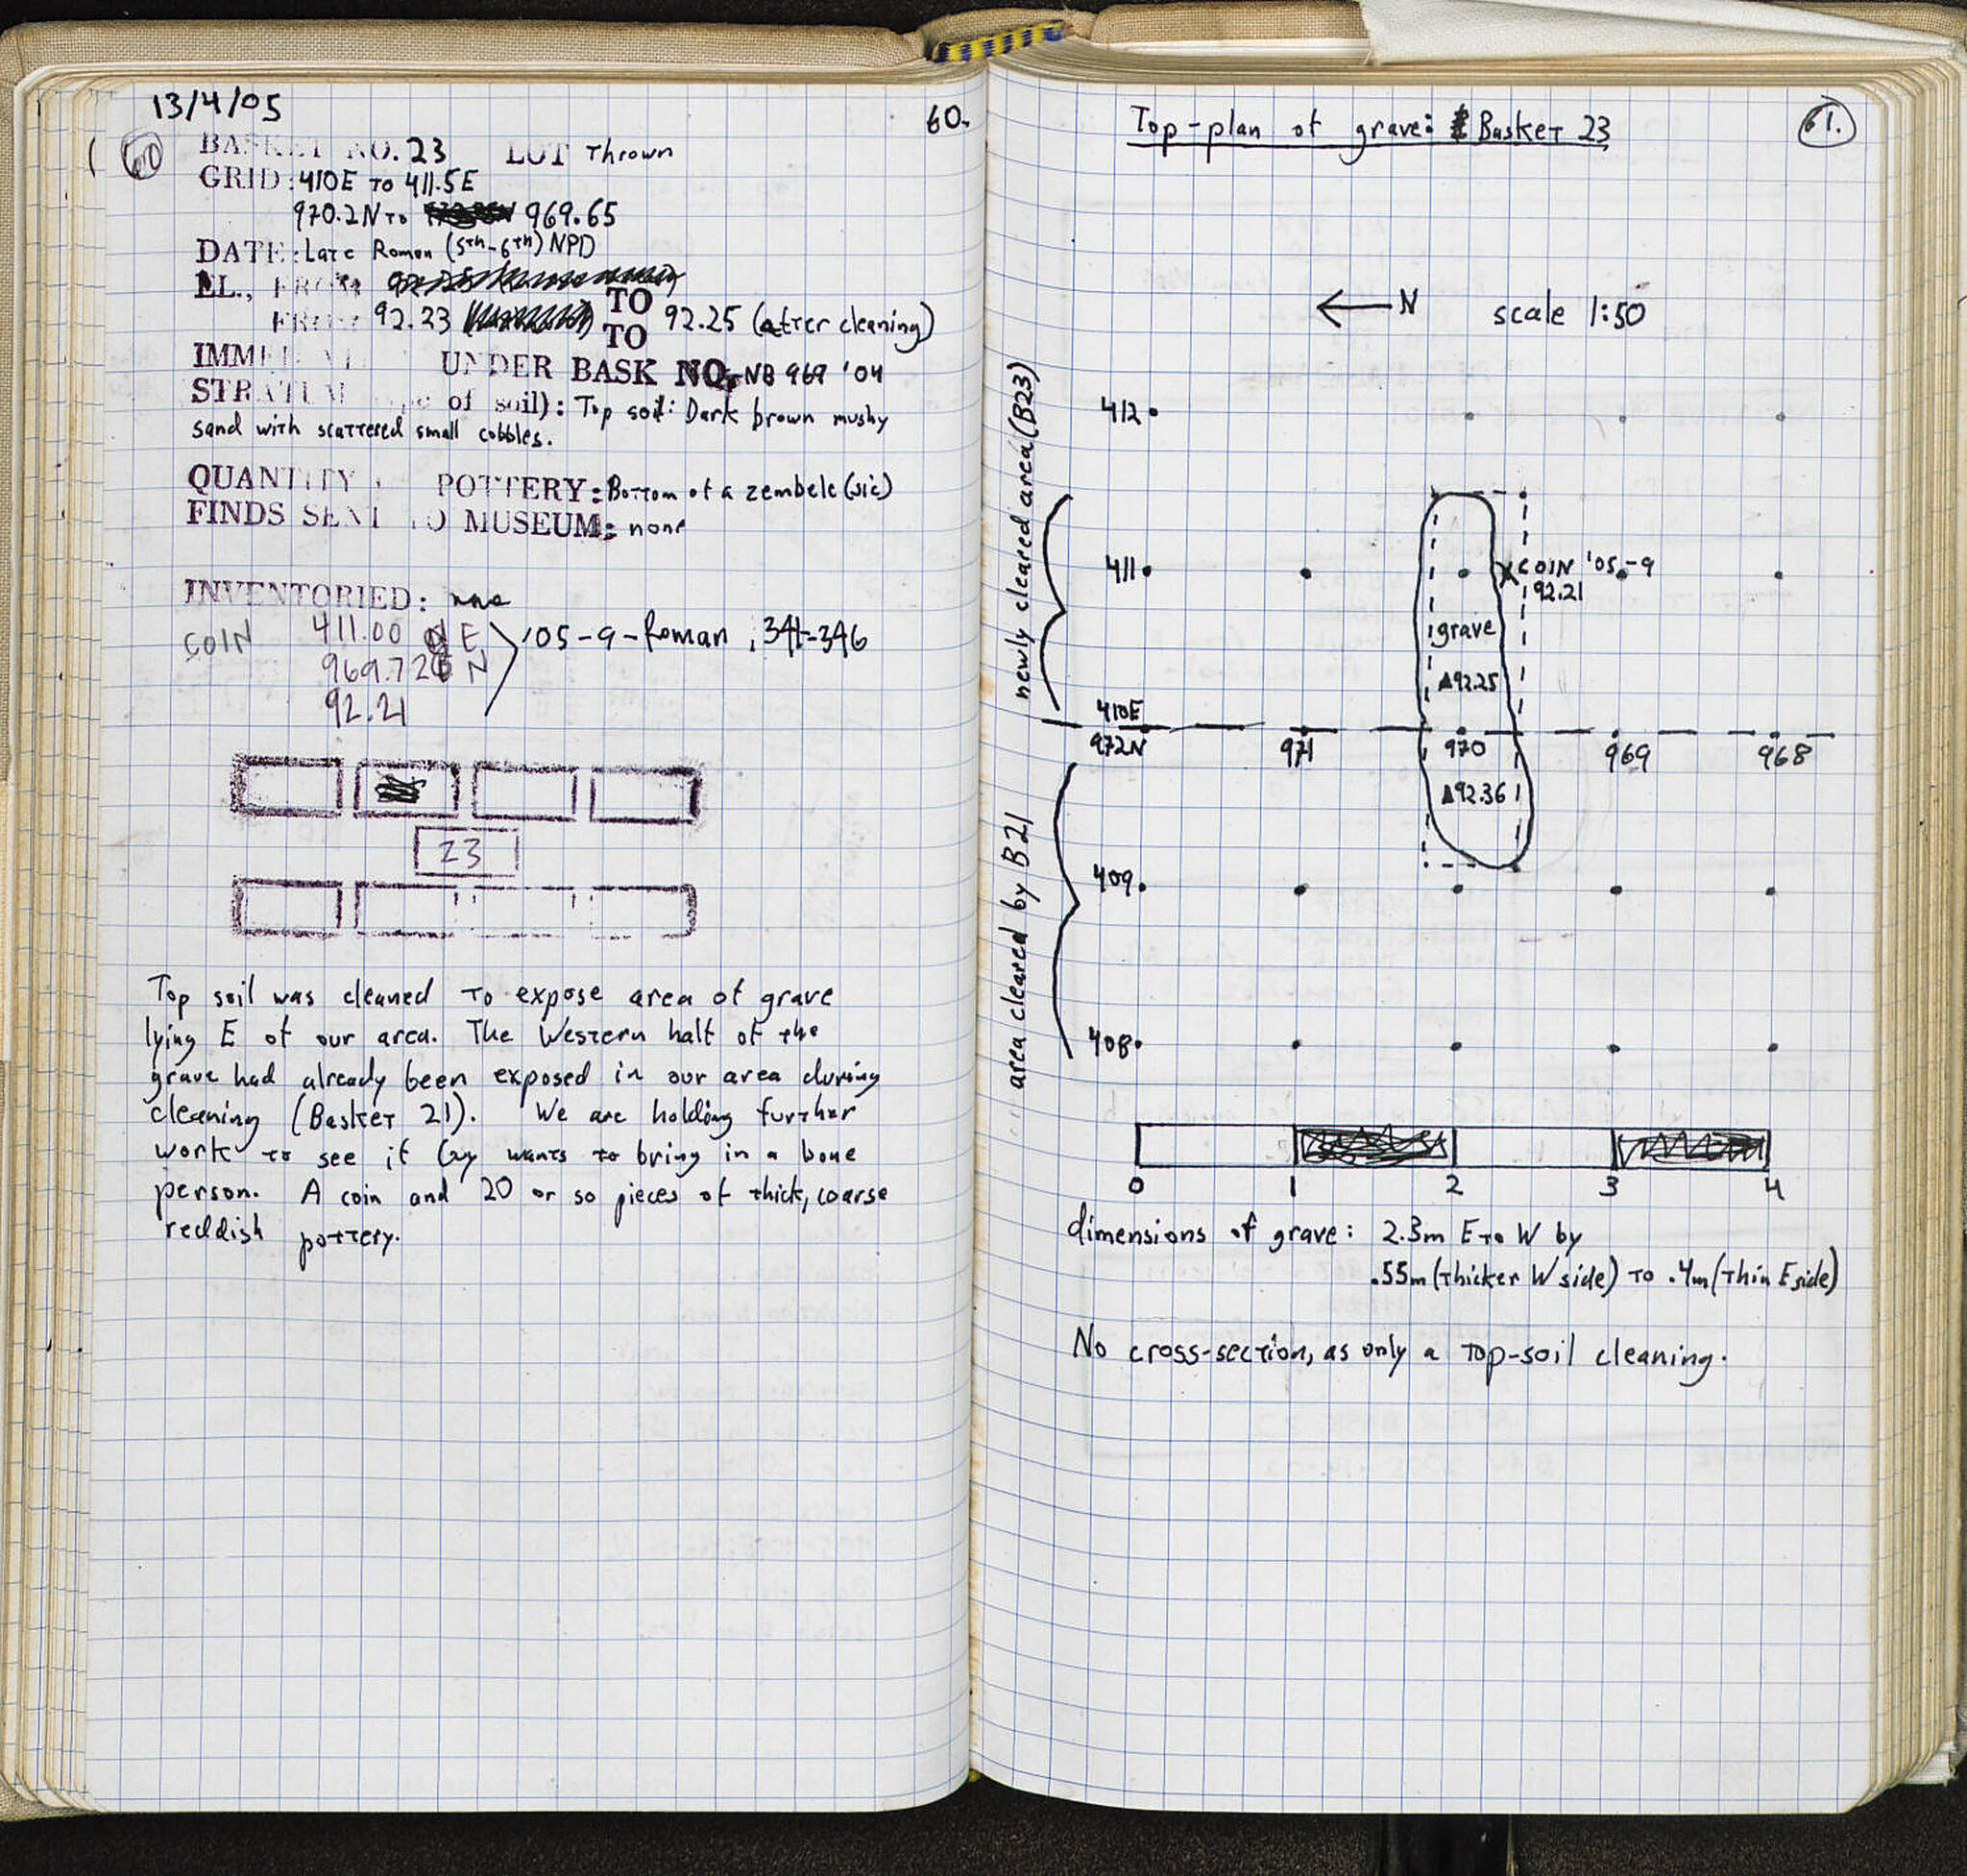 13/4/05
60.
BASKET NO. 23 LOT Thrown
GRID: 410E TO 411.5E
970.2N TO 969.65
DATE: Late Roman (5th-6th) NPD
EL., FROM TO
FROM 92.23 TO 92.25 (after cleaning)
UNDER BASK NO. NB 969 '04
STRATUM of soil): Top soil: Dark brown mushy
sand with scattered small cobbles.
QUANTITY POTTERY: Bottom of a zembele (sic)
FINDS SENT TO MUSEUM: none
INVENTORIED:
COIN 411.00 E
969.72 N
92.21
'05-9-Roman, 341-346
23
Top soil was cleaned to expose area of grave
lying E of our area. The Western half of the
grave had already been exposed in our area during
cleaning (Basket 21). We are holding further
work to see if Guy wants to bring in a bone
person. A coin and 20 or so pieces of thick, coarse
reddish pottery.
Top-plan of grave: Basket 23
61.
N scale 1:50
newly cleared area (B23)
area cleared by B21
412
411
COIN '05-9
92.21
grave
92.25
410E
972N 971 970 969 968
92.36
409
408
0 1 2 3 4
dimensions of grave: 2.3m E to W by
.55m (thicker W side) to .4m (thin E side)
No cross-section, as only a top-soil cleaning.